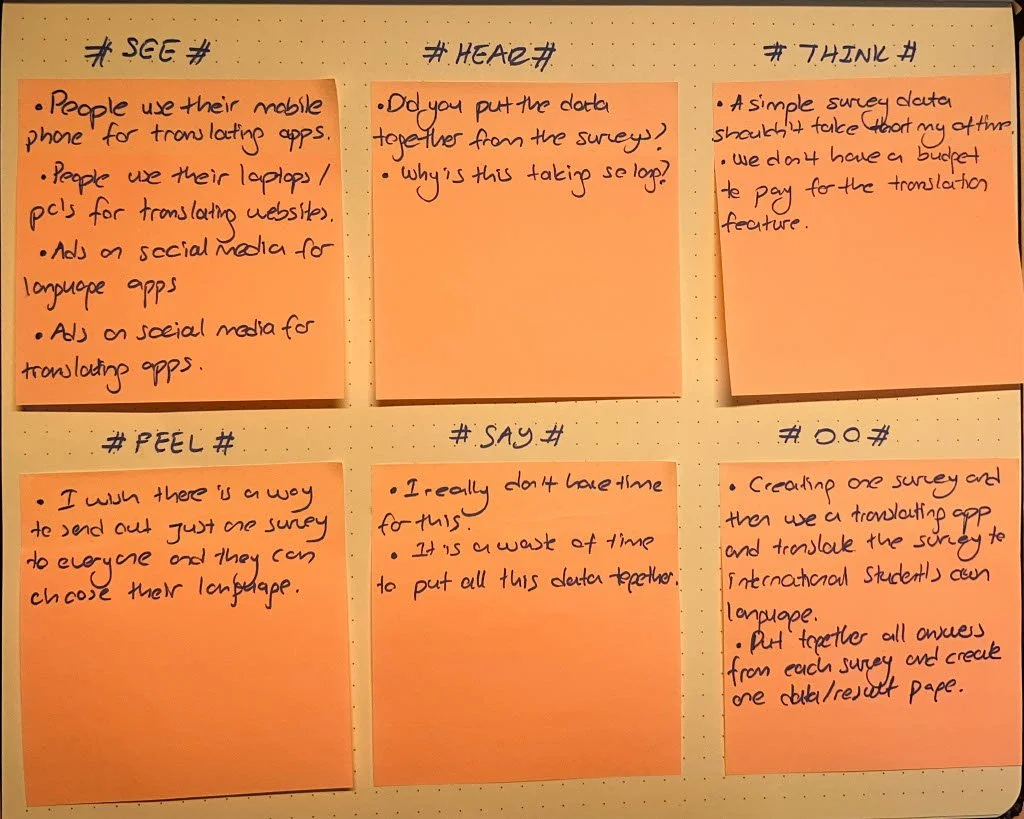 # SEE #
• People use their mobile
phone for translating apps.
• People use their laptops/
pc's for translating websites.
• Ads on social media for
language apps
• Ads on social media for
translating apps.
# HEAR #
• Did you put the data
together from the surveys?
• Why is this taking so long?
# THINK #
• A simple survey data
shouldn't take that my of time.
• We don't have a budget
to pay for the translation
feature.
# FEEL #
• I wish there is a way
to send out just one survey
to everyone and they can
choose their language.
# SAY #
• I really don't have time
for this.
• It is a waste of time
to put all this data together.
# DO #
• Creating one survey and
then use a translating app
and translate the survey to
international students own
language.
• Put together all answers
from each survey and create
one data/result page.